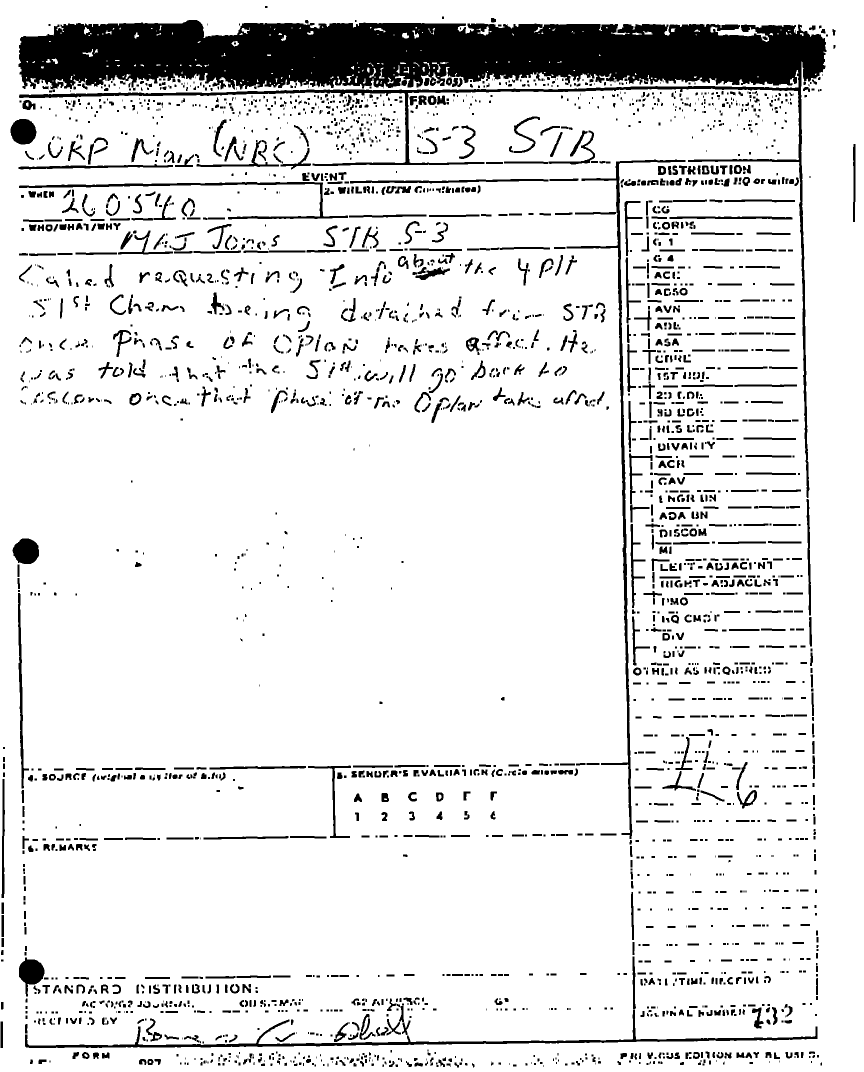 FROM:
CORP Main (NRC)
S-3 STB
EVENT
DISTRIBUTION
(determined by using HQ or units)
WHEN 260540
2. WHERE (UTM Coordinates)
WHO/WHAT/WHY MAJ Jones STB S-3
Called requesting Info about the 4 Plt
51st Chem being detached from STB
once Phase of OPlan takes affect. He
was told that the 51st will go back to
once that Phase of the Oplan take affect.
CG
CORPS
G 1
G 4
ACE
ADSO
AVN
ADE
ASA
CBRE
1ST BDE
2D BDE
3D BDE
RES BDE
DIVARTY
ACR
CAV
ENGR BN
ADA BN
DISCOM
MI
LEFT-ADJACENT
RIGHT-ADJACENT
PMO
HQ CMDT
DIV
DIV
OTHER AS REQUIRED
4. SOURCE
5. SENDER'S EVALUATION (Circle answers)
A B C D E F
1 2 3 4 5 6
6. REMARKS
STANDARD DISTRIBUTION:
JOURNAL
DATE/TIME RECEIVED
RECEIVED BY
JOURNAL NUMBER 732
FORM
PREVIOUS EDITION MAY BE USED.